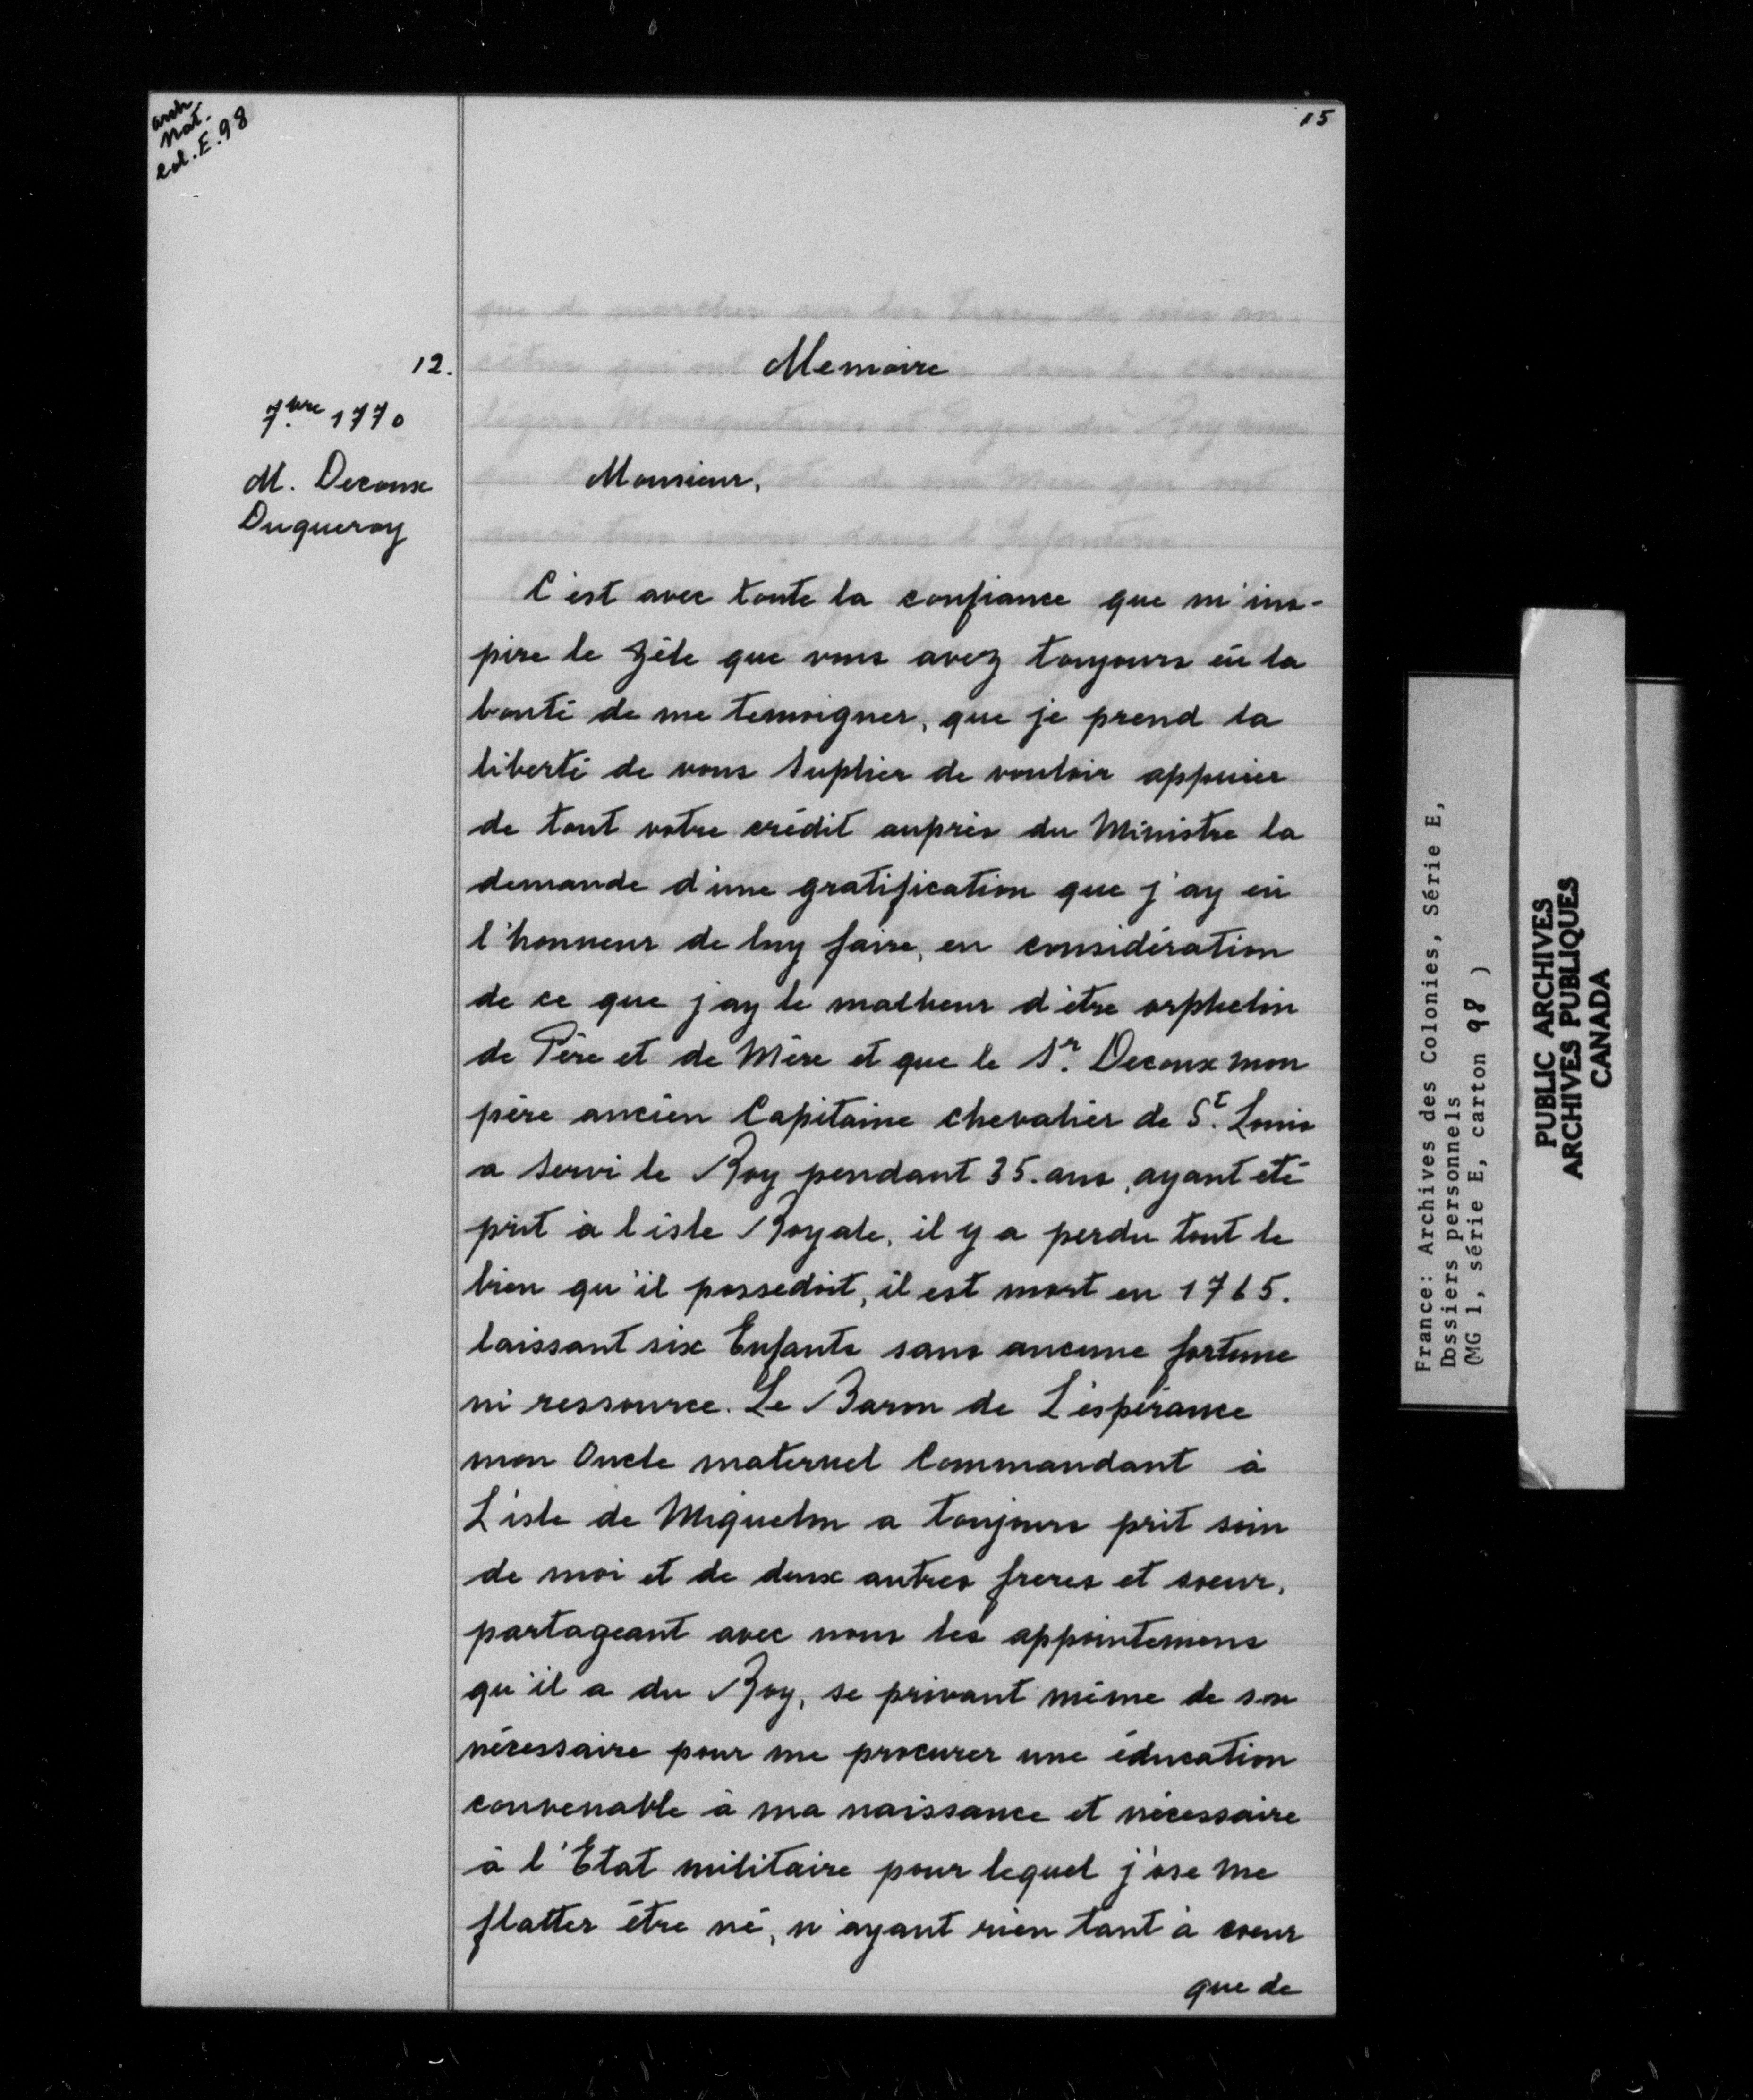 arch
nat.
Col. E. 98
15
12.
7.bre 1770
M. Decoux
Duqueroy
Memoire
Monsieur,
C'est avec toute la confiance que m'ins-
pire le Zéle que vous avez toujours eü la
bonté de me temoigner, que je prend la
liberté de vous suplier de vouloir appuier
de tout votre crédit auprès du Ministre la
demande d'une gratification que j'ay eü
l'honneur de luy faire, en considération
de ce que j'ay le malheur d'être orphelin
de Père et de Mère et que le Sr. Decoux mon
père ancien Capitaine chevalier de St. Louis
a servi le Roy pendant 35. ans, ayant été
prit à l'isle Royale, il y a perdu tout le
bien qu'il possedoit, il est mort en 1765.
laissant six Enfants sans aucune fortune
ni ressource. Le Baron de L'espérance
mon Oncle maternel Commandant à
L'isle de Miquelon a toujours prit soin
de moi et de deux autres freres et soeur,
partageant avec nous les appointemens
qu'il a du Roy, se privant même de son
nécessaire pour me procurer une éducation
convenable à ma naissance et nécessaire
à l'Etat militaire pour lequel j'ose me
flatter être né, n'ayant rien tant à coeur
que de
France: Archives des Colonies, Série E,
Dossiers personnels
(MG 1, série E, carton 98 )
PUBLIC ARCHIVES
ARCHIVES PUBLIQUES
CANADA